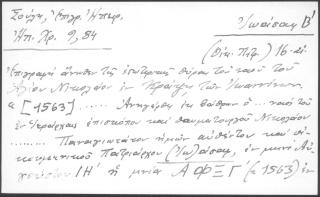 Σούλη, Ἐπιγρ. Ἠπείρ.
Ἠπ. Χρ. 9, 84
Ἰωάσαφ Β'
(Οἰκ. Πατρ.) 16 αἰ.
Ἐπιγραφὴ ἄνωθεν τῆς ἐσωτερικῆς θύρας τοῦ ναοῦ τοῦ
Ἁγίου Νικολάου ἐν Ἰωαννίνων.
« [1563] ...... Ἀνηγέρθη ἐκ βάθρων ὁ ... ναὸς τοῦ
ἐν Ἱεράρχαις ἐπισκόπου καὶ θαυματουργοῦ Νικολάου
...... Παναγιωτάτου ἡμῶν αὐθέντου καὶ οἰ-
κουμενικοῦ Πατριάρχου (Ἰω)άσαφ, ἐν μηνὶ Αὐ-
γούστου ΙΗ' ΑΦΞΓ' (= 1563) ἐν